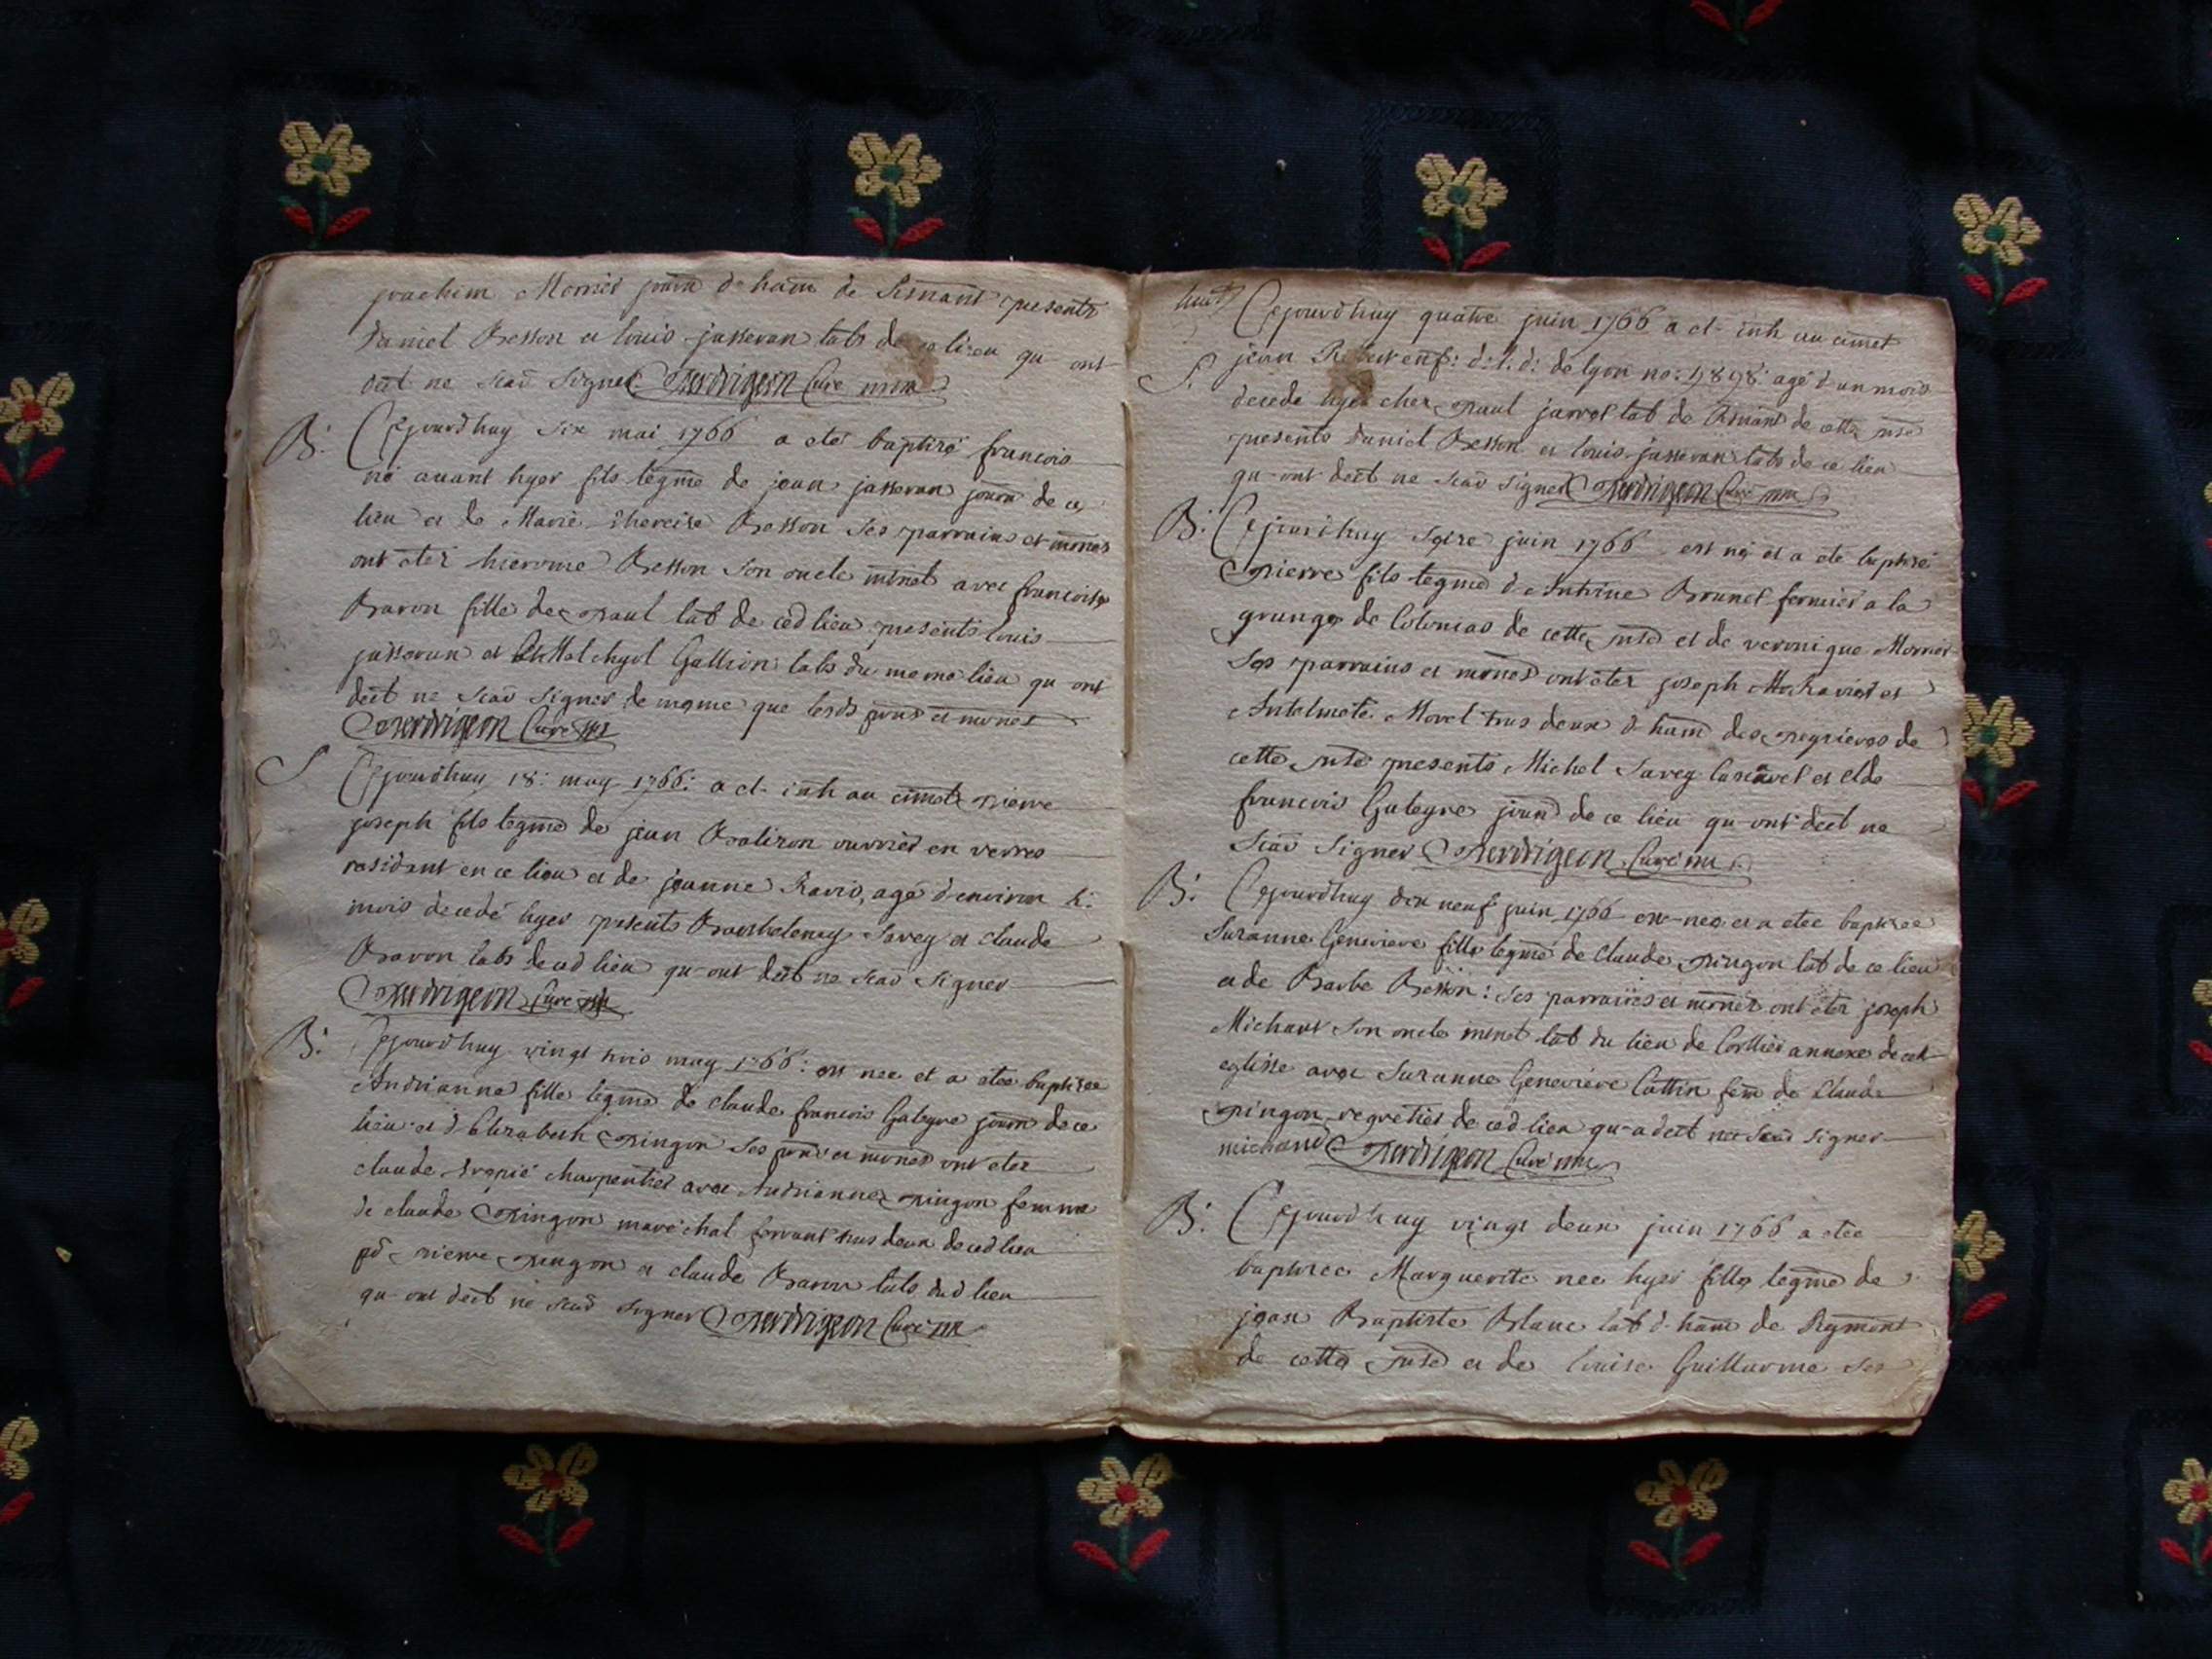 joachim Mornier journ d. ham de presents
daniel Besson et louis jasseran labs de ce lieu qu- ont
deēt ne scav signer Perdrigeon Curé
B. Cejourdhuy six mai 1766 a eté baptizé francois
né avant hyer fils legme de jean jasseran journ de ce
lieu et de Marie Besson ses parrains et
ont éter hierome Besson son oncle avec francoise
Baron fille de paul lab de ced lieu presents louis
jasseran et Gallion labs du meme lieu qu ont
deēt ne scav signer de meme que lesds et
Perdrigeon Curé
S Cejourdhuy 18: may 1766: a et- inh au pierre
joseph fils legme de jean ouvrier en verres
residant en ce lieu et de jeanne Ravis, agé d'environ
mois decedé hyer presents Barthelemy Savey et claude
Baron labs de ced lieu qu-ont deēt ne scav signer
Perdrigeon Curé
B: Cejourdhuy vingt trois may 1766: est nee et a etee baptisee
Andrianne fille legme de claude francois Galeyre journ de ce
lieu et d'Elizabeth pingon ses et ont eter
claude charpentier avec Andrianne pingon femme
de claude pingon maréchal ferrant tous deux de ced lieu
pierre pingon et claude Baron labs dud lieu
qu-ont deēt ne scav signer Perdrigeon Curé
Cejourdhuy quatre juin 1766 a et- inh au
S. jean enf: d: l. d: de lyon no: agé d'un mois
decede hyer chez paul lab de de cette
presents daniel Besson et louis jasseran labs de ce lieu
qu-ont deēt ne scav signer Perdrigeon Curé
B: Cejourdhuy seize juin 1766 est né et a eté baptisé
pierre fils legme d'Antoine Brunet fermier a la
grange de de cette et de veronique Mornier
ses parrains et ont éter joseph et
Morel tous deux d. ham des de
cette presents Michel Savey et Clde
francois Galeyre journ de ce lieu qu-ont deēt ne
scav signer Perdrigeon Curé
B. Cejourdhuy dix neuf juin 1766 est nee et a etee baptisee
Suzanne Genevieve fille legme de Claude pingon lab de ce lieu
et de Barbe Besson: ses parrains et ont éter joseph
Michaud son oncle lab du lieu de annexe de cet-
eglise avec Suzanne Genevieve Cottin fem de Claude
pingon de ced lieu qu-a deēt ne scav signer
michaud Perdrigeon Curé
B: Cejourdhuy vingt deux juin 1766 a etee
baptisee Marguerite nee hyer fille legme de
jean Baptiste Blanc lab d. ham de
de cette et de louise Guillaume ses